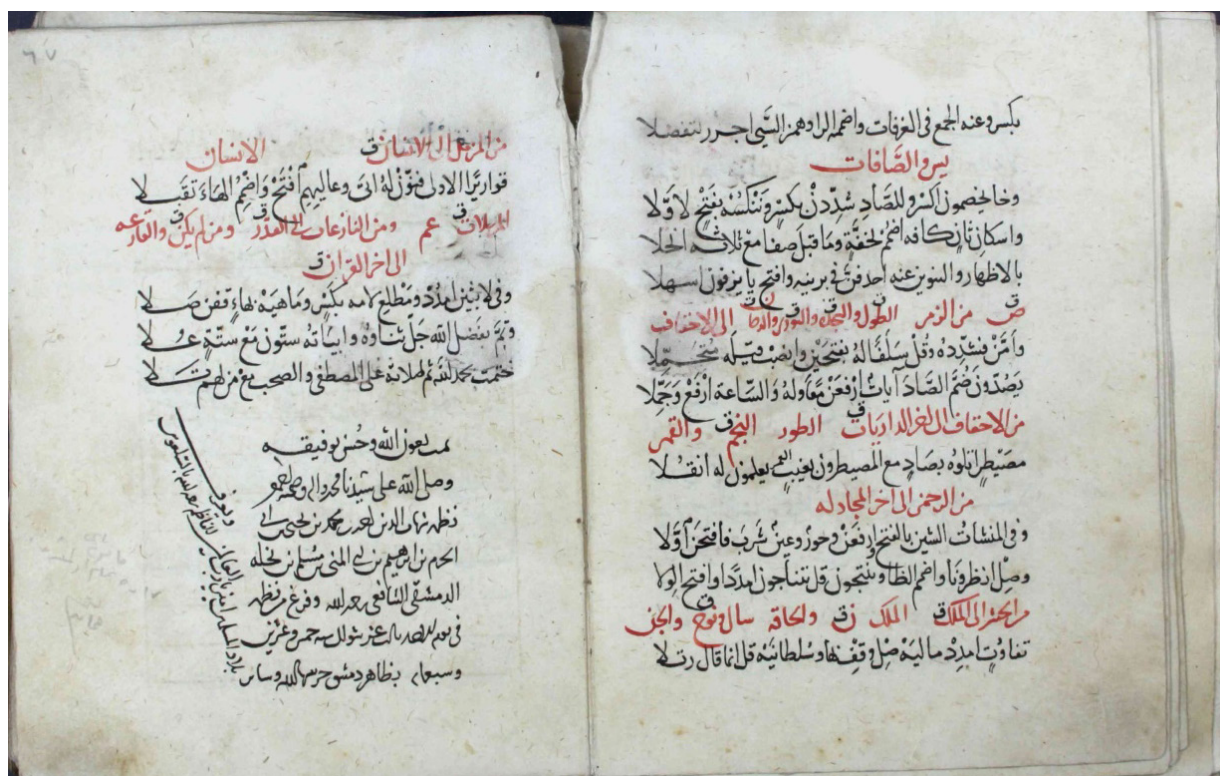 بكسر وعنه الجمع فى الغرفات واضمم الرا وهمز السيئ اجرر لتفضلا
يس والصافات
وخا يخصمون اكسر وللصاد شددن بكسر وننكسه بفتح لا ولا
واسكان ثان كافه اضمم لخفة وما قبل صفا مع ثلاثة
بالاظهار والتنوين عنه احذفن فى بزينة وافتح يا يزفون اسهلا
ص ق من الزمر الى الاحقاف
وأمن فشدده وقل سلفا له بفتحين وانصب وقيله
يصدون ضم الصاد آيات ارفعن معا وله والساعة ارفع وجملا
من الاحقاف الى اخر الذاريات الطور النجم ق والقمر
مصيطر اتلوه بصاد مع المصيطرون بغيب يعلمون له انقلا
من الرحمن الى اخر المجادله
وفى المنشآت الشين بالفتح ارفعن وحور وعين شرب فافتحن أولا
وصل انظرونا واضمم الظا وينتجون قل تتناجون امددا وافتح الولا
من الحشر الى الملك ق الملك ن ق والحاقه سال ونوح ق والجن
تفاوت امدد ماليه صل وقف بها وسلطانيه قل انما قال رتلا
من المزمل الى الانسان ق الانسان
قواريرا الاولى فنون له اتى وعاليهم افتح واضمم الهاء تقبلا
المرسلات ق عم ومن النازعات الى القدر ق ومن لم يكن ق والقارعه
الى اخر القران ق
وفى لابثين امدد ومطلع لامه بكسر وماهيه بهاء قفن صلا
وتم بفضل الله جل ثناؤه وابياته ستون مع ستة علا
ختمت بحمد الله ثم صلاته على المصطفى والصحب مع من لهم تلا
تمت بعون الله وحسن توفيقه
وصلى الله على سيدنا محمد واله وصحبه
نظمه شهاب الدين احمد بن محمد بن يحيى بن ابى
الحزم بن ابرهيم بن ابى المنى بن مسلم بن نخله
الدمشقى الشافعى رحمه الله وفرغ من نظمه
فى يوم ثالث عشر شوال سنه خمس وعشرين
وسبعماية بظاهر دمشق حرسها الله وسائر
بلاد المسلمين امين رب العالمين